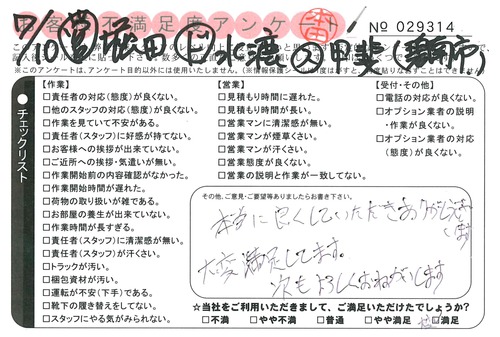 お客様不満足度アンケート
No 029314
7/10 堀田 水渡 甲斐
※このアンケートは、アンケート目的以外には使用いたしません。
チェックリスト
【作業】
□責任者の対応(態度)が良くない。
□他のスタッフの対応(態度)が良くない。
□作業を見ていて不安がある。
□責任者(スタッフ)に好感が持てない。
□お客様への挨拶が出来ていない。
□ご近所への挨拶・気遣いが無い。
□作業開始前の内容確認がなかった。
□作業開始時間が遅れた。
□荷物の取り扱いが雑である。
□お部屋の養生が出来ていない。
□作業時間が長すぎる。
□責任者(スタッフ)に清潔感が無い。
□責任者(スタッフ)が汗くさい。
□トラックが汚い。
□梱包資材が汚い。
□運転が不安(下手)である。
□靴下の履き替えをしてない。
□スタッフにやる気がみられない。
【営業】
□見積もり時間に遅れた。
□見積もり時間が長い。
□営業マンに清潔感が無い。
□営業マンが煙草くさい。
□営業マンが汗くさい。
□営業態度が良くない。
□営業の説明と作業が一致してない。
【受付・その他】
□電話の対応が良くない。
□オプション業者の説明
・作業が良くない。
□オプション業者の対応
(態度)が良くない。
その他、ご意見・ご要望等ありましたらお書き下さい。
本当に良くしていただきありがとうございます
大変満足してます。
次もよろしくおねがいします
☆当社をご利用いただきまして、ご満足いただけたでしょうか?
□不満 □やや不満 □普通 □やや満足 □満足